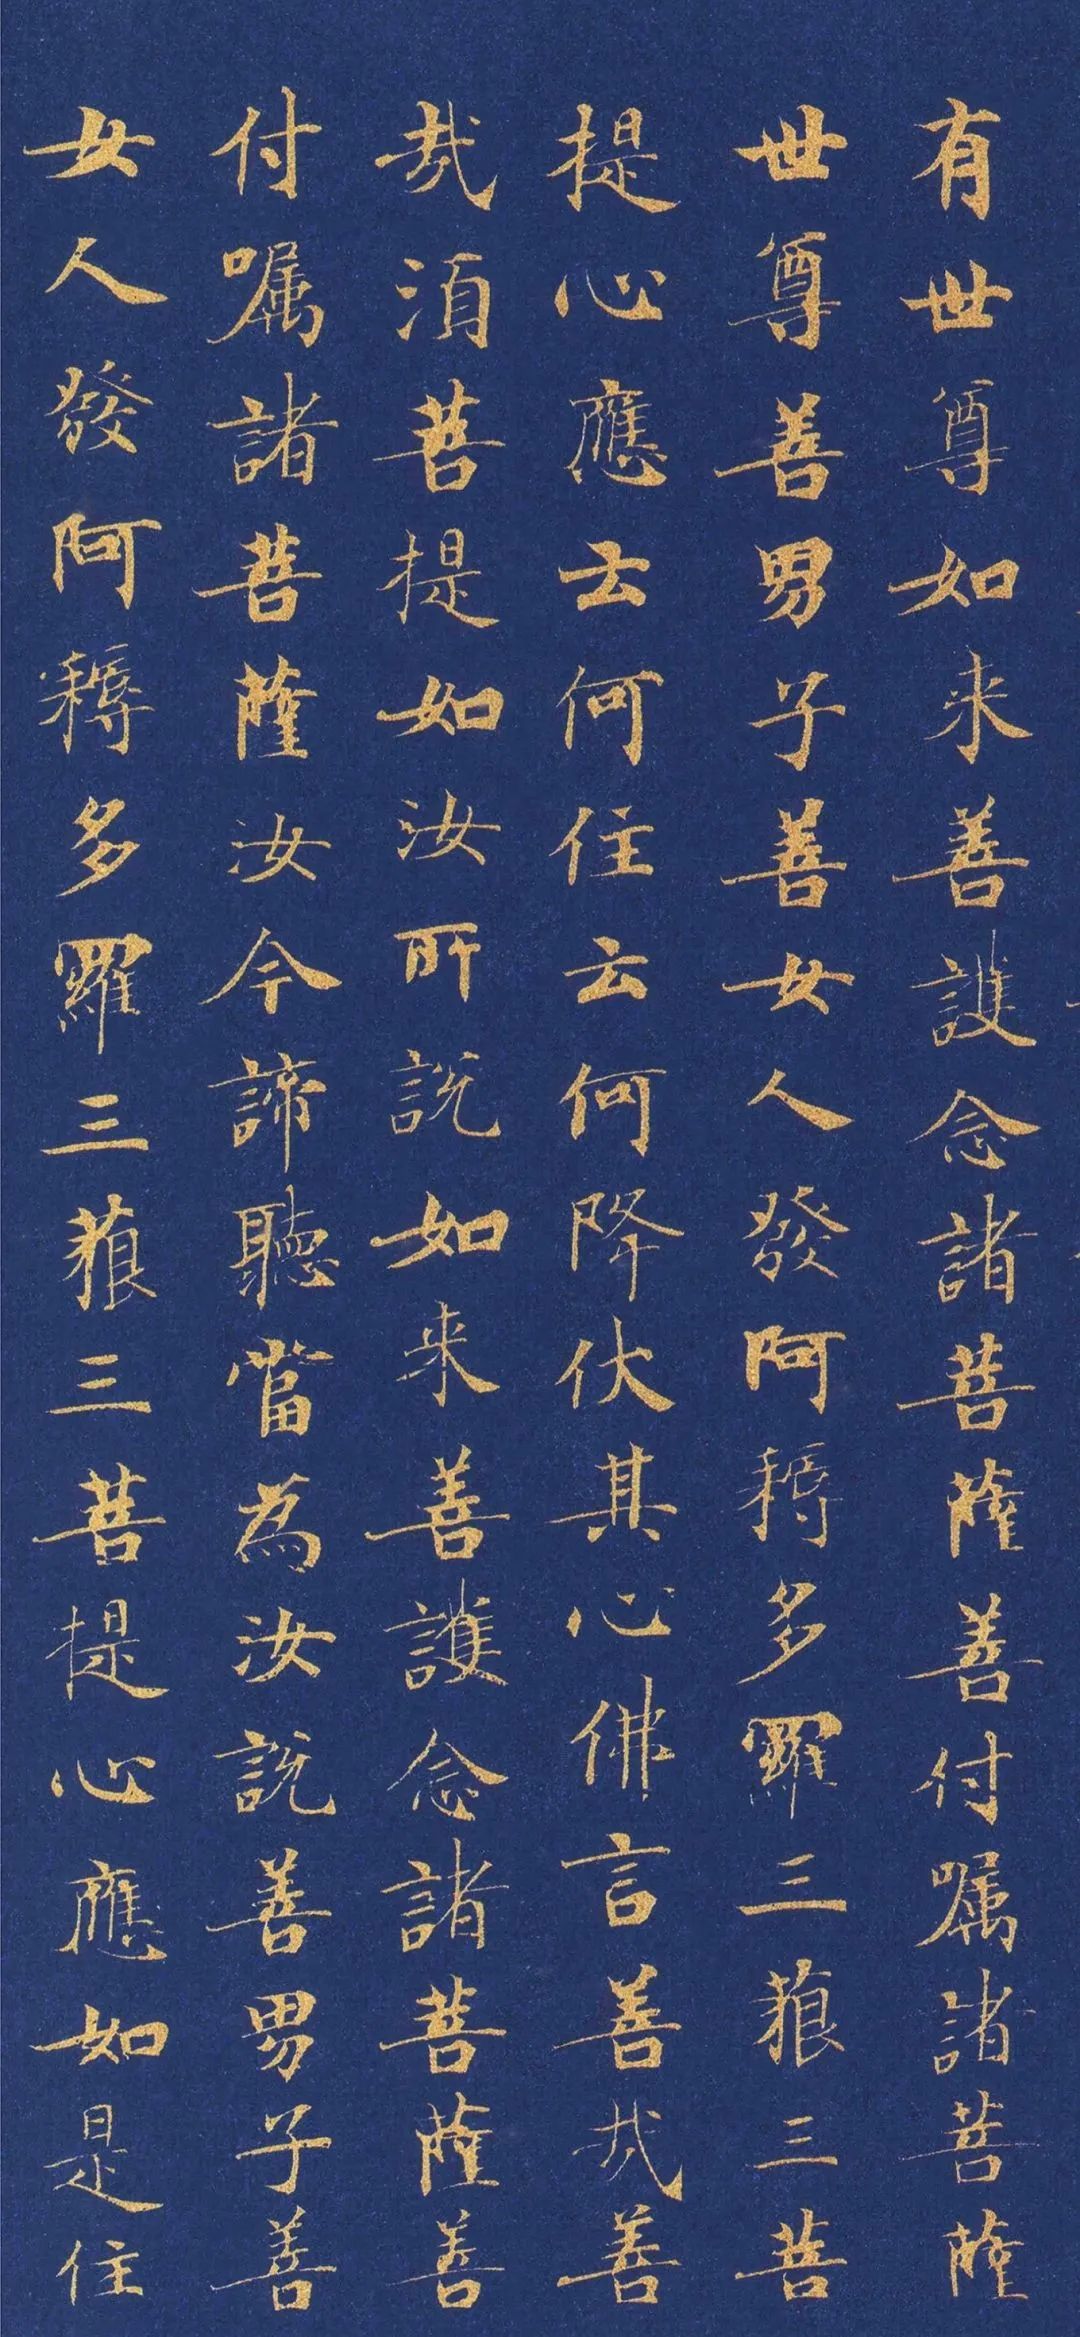 有世尊如来善護念諸菩薩善付嘱諸菩薩
世尊善男子善女人發阿耨多羅三藐三菩
提心應云何住云何降伏其心佛言善哉善
哉須菩提如汝所説如来善護念諸菩薩善
付嘱諸菩薩汝今諦聽當為汝説善男子善
女人發阿耨多羅三藐三菩提心應如是住